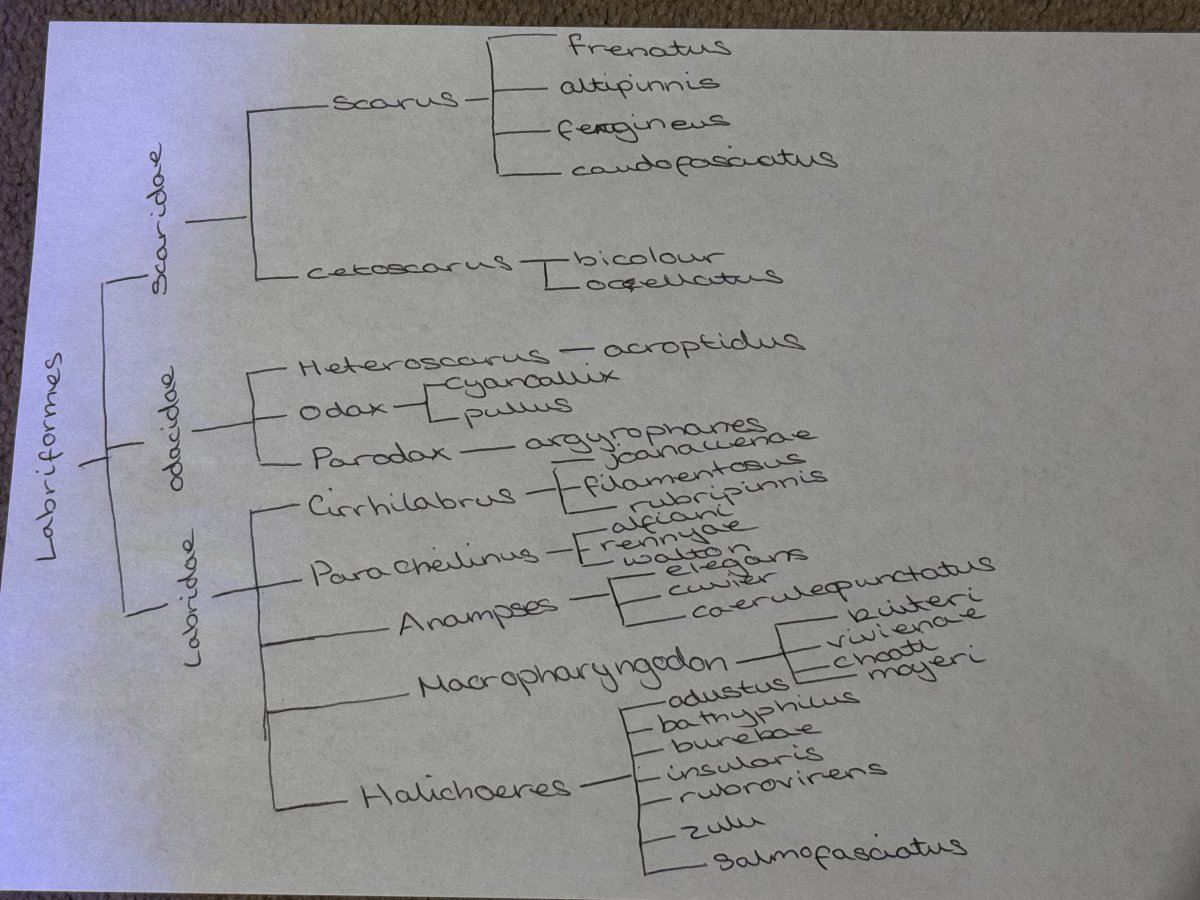 Labriformes
Scaridae
Scarus
frenatus
altipinnis
caudofasciatus
cetoscarus
bicolour
odacidae
Heteroscarus
acroptidus
Odax
cyanoallix
pullus
Parodax
argyrophanes
Labridae
Cirrhilabrus
joanallenae
filamentosus
rubripinnis
Paracheilinus
alfiani
rennyae
walton
Anampses
elegans
cuvier
caeruleopunctatus
Macropharyngodon
kuiteri
vivienae
choati
moyeri
Halichoeres
adustus
bathyphicus
burebae
insularis
rubrovirens
zulu
Salmofasciatus